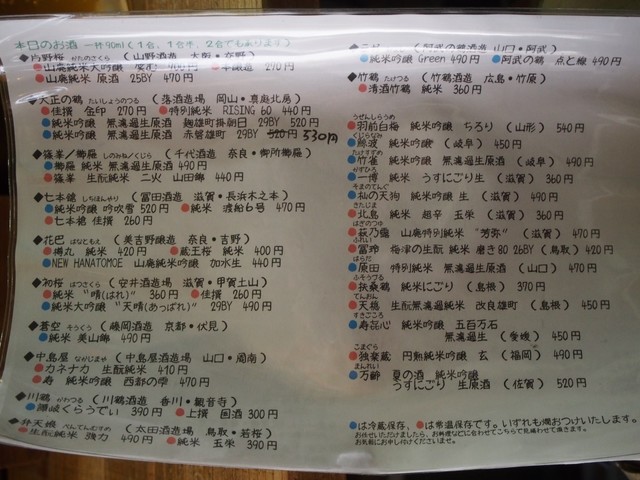 本日のお酒 一杯90ml(1合、1合半、2合でもあります)
◆片野桜 かたのさくら (山野酒造 大阪・交野)
●山廃純米大吟醸
●山廃純米 原酒 25BY 470円
◆大正の鶴 たいしょうのつる (落酒造場 岡山・真庭北房)
●佳撰 金印 270円 ●特別純米 RISING 60 440円
●純米吟醸 無濾過生原酒 麹謎町掛朝日 29BY 520円
●純米吟醸 無濾過生原酒 赤磐雄町 29BY 520円 530円
◆篠峯/櫛羅 しのみね/くじら (千代酒造 奈良・御所櫛羅)
●櫛羅 純米 無濾過生原酒 490円
●篠峯 生酛純米 二火 山田錦 440円
◆七本鎗 しちほんやり (冨田酒造 滋賀・長浜木之本)
●純米吟醸 吟吹雪 520円 ●純米 渡船6号 470円
●七本鎗 佳撰 260円
◆花巴 はなともえ (美吉野醸造 奈良・吉野)
●樽丸 純米 420円 ●蔵王桜 純米 400円
●NEW HANATOMOE 山廃純米吟醸 加水生 440円
◆初桜 はつさくら (安井酒造場 滋賀・甲賀土山)
●純米 "晴(はれ)" 360円 ●佳撰 260円
●純米大吟醸 "天晴(あっぱれ)" 29BY 490円
◆蒼空 そうくう (藤岡酒造 京都・伏見)
●純米 美山錦 490円
◆中島屋 なかじまや (中島屋酒造場 山口・周南)
●カネナカ 生酛純米 410円
●寿 純米吟醸 西都の雫 470円
◆川鶴 かわつる (川鶴酒造 香川・観音寺)
●讃岐くらうでぃ 390円 ●上撰 回酒 300円
◆弁天娘 べんてんむすめ (太田酒造場 鳥取・若桜)
●生酛純米 強力 490円 ●純米 玉栄 390円
(阿武の鶴酒造 山口・阿武)
●純米吟醸 Green 490円 ●阿武の鶴 点と線 490円
◆竹鶴 たけつる (竹鶴酒造 広島・竹原)
●清酒竹鶴 純米 360円
うぜんしらうめ
●羽前白梅 純米吟醸 ちろり (山形) 540円
くじらなみ
●鯨波 純米吟醸 (岐阜) 450円
たけすずめ
●竹雀 純米吟醸 無濾過生原酒 (岐阜) 490円
かずひろ
●一博 純米 うすにごり生 (滋賀) 360円
そまのてんぐ
●杣の天狗 純米吟醸 生 (滋賀) 490円
きたじま
●北島 純米 超辛 玉栄 (滋賀) 360円
はぎのつゆ
●萩乃露 山廃特別純米 "芳弥" (滋賀) 470円
ふれい
●冨玲 梅津の生酛 純米 磨き80 26BY (鳥取) 420円
はらだ
●原田 特別純米 無濾過生原酒 (山口) 470円
ふそうづる
●扶桑鶴 純米にごり (島根) 370円
てんおん
●天穏 生酛無濾過純米 改良雄町 (島根) 450円
すきごころ
●寿喜心 純米吟醸 五百万石
無濾過生 (愛媛) 450円
こまぐら
●独楽蔵 円熟純米吟醸 玄 (福岡) 490円
まんれい
●万齢 夏の酒 純米吟醸
うすにごり 生原酒 (佐賀) 520円
●は冷蔵保存、●は常温保存です。いずれも燗おつけいたします。
お任せいただけましたら、お料理などに合わせてこちらで見繕わせて頂きます。
お気軽にお申し付けくださいませ。